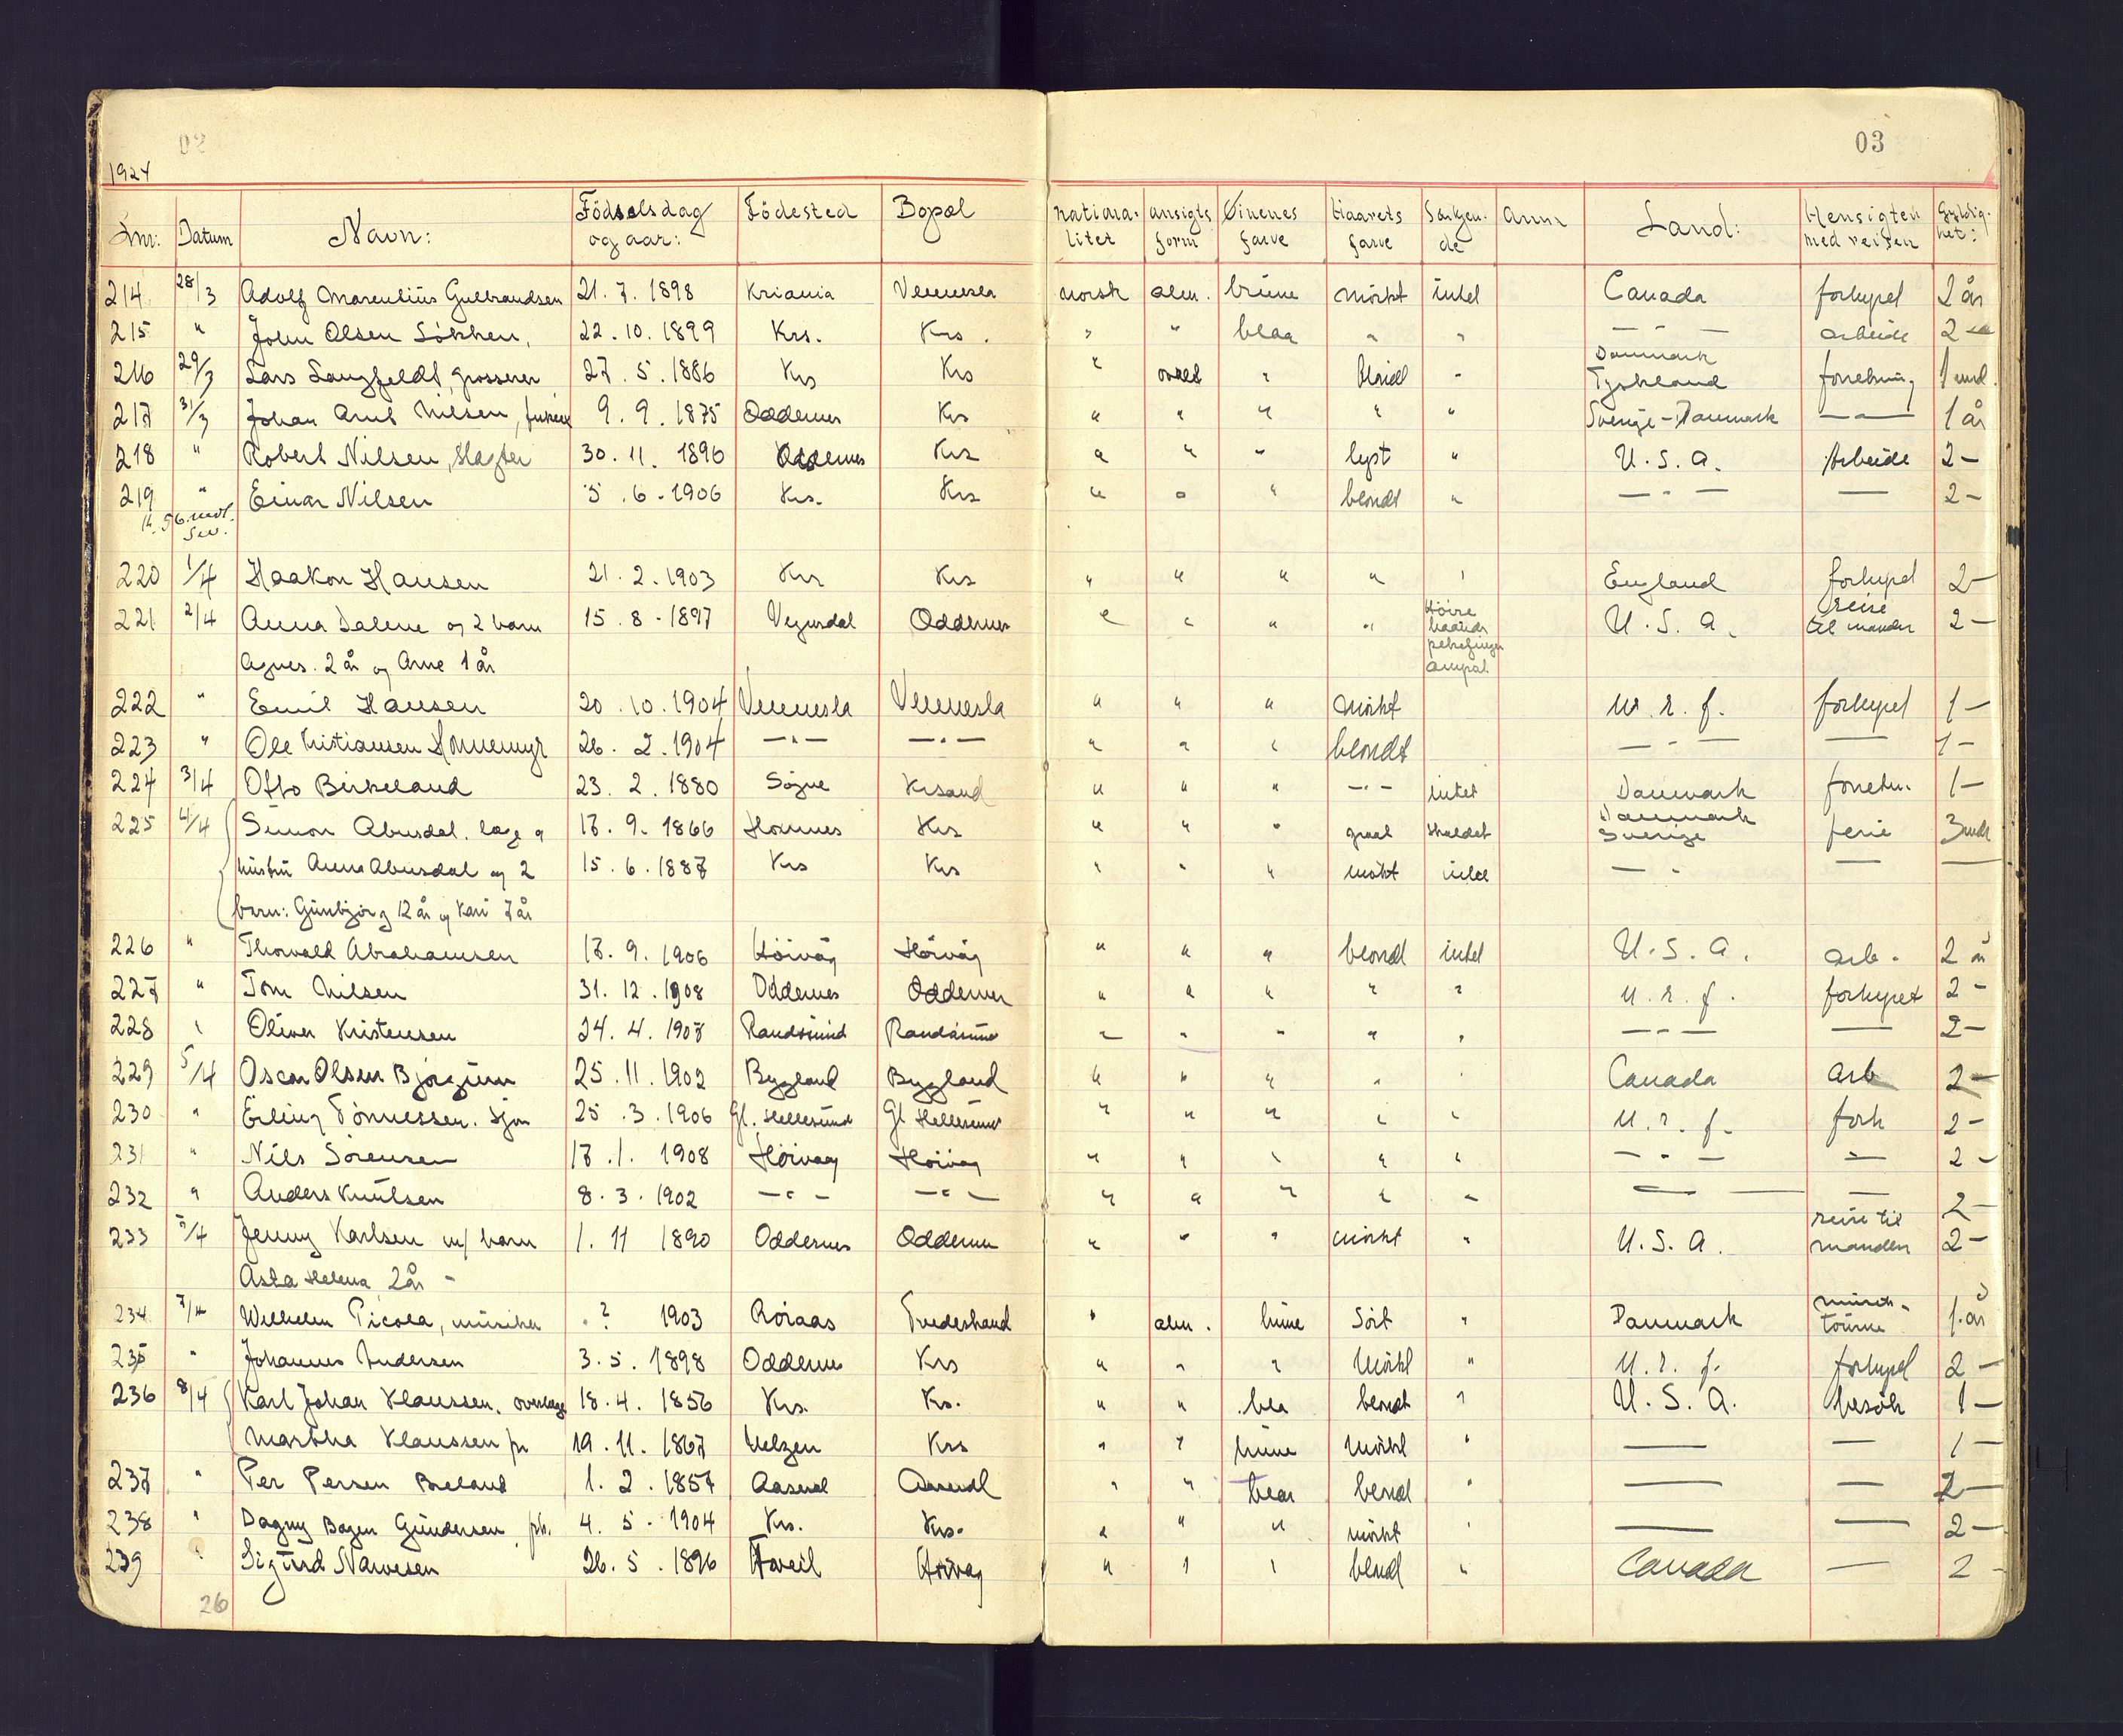 02
03
1924
Lnr: Datum Navn: Födselsdag og aar: Födested Bopæl nationa-litet ansigts form Öinenes farve Haarets farve Særkjen-de anm Land: Hensigten med reisen Gyldig-het:
214 28/3 Adolf Marentius Gulbrandsen 21. 7. 1898 Kriania Vennesla norsk alm. brune mörkt intet Canada forhyret 2 år
215 " John Olsen Lökken, 22. 10. 1899 Krs. Krs. " " blaa " " — " — arbeide 2 —
216 29/3 Lars Langfeldt grosserer 27. 5. 1886 Krs Krs " ovalt " blond " Danmark Tyskland forretning 1 mnd.
217 31/3 Johan Arnt Nilsen, 9. 9. 1875 Oddernes Krs " " " " " Sverige - Danmark — " — 1 år
218 " Robert Nilsen, Slagter 30. 11. 1896 Oddernes Krs " " " lyst " U. S. A. Arbeide 2 —
219 " Einar Nilsen 5. 6. 1906 Krs. Krs " " " blondt " — " — — 2 —
220 1/4 Haakon Hansen 21. 2. 1903 Krs Krs " " " " " England forhyret 2 —
221 2/4 Anna Dalene og 2 barn 15. 8. 1897 Vegusdal Oddernes " " " " Höire haands pekefinger ampat. U. S. A. reise til manden 2 —
Agnes. 2 år og Arne 1 år
222 " Emil Hansen 20. 10. 1904 Vennesla Vennesla " " " mörkt u. r. f. forhyret 1 —
223 " Ole Kristiansen 26. 2. 1904 — " — — " — " " " blondt — " — — 1 —
224 3/4 Otto Birkeland 23. 2. 1880 Søgne Krsand " " " — " — intet Danmark forretn. 1 —
225 4/4 Simon Abusdal. læge og 17. 9. 1866 Hornnes Krs " " " graat skaldet Danmark Sverige ferie 3 mdr
hustru Anna Abusdal og 2 15. 6. 1887 Krs Krs " " " mörkt intet — " — —
barn: Gunbjörg 12 år og Kari 7 år
226 " Thorvald Abrahamsen 17. 9. 1906 Höivåg Höivåg " " " blond intet U. S. A. arb. 2 år
227 " Tom Nilsen 31. 12. 1908 Oddernes Oddernes " " " " " u. r. f. forhyret 2 —
228 " Oliver Kristensen 24. 4. 1907 Randösund Randösund " " " " " — " — — 2 —
229 5/4 Oscar Olsen Björgum 25. 11. 1902 Bygland Bygland " " " " " Canada arb 2 —
230 " Erling Tönnessen. sjøm 25. 3. 1906 Gl. Hellesund Gl Hellesund " " " " " u. r. f. forh 2 —
231 " Nils Sörensen 17. 1. 1908 Höivaag Höivåg " " " " " — " — — 2 —
232 " Anders Knutsen 8. 3. 1902 — " — — " — " " " " " — — — 2 —
233 5/4 Jenny Karlsen m/ barn 1. 11 1890 Oddernes Oddernes " " " mörkt " U. S. A. reise til manden 2 —
Asta Helena 2 år —
234 7/4 Wilhelm Picola, musiker ? 1903 Röraas Tvedestrand " alm. brune Sort " Danmark musik-tourne 1 år
235 " Johannes Andersen 3. 5. 1898 Oddernes Krs " " " Mörkt " u. r. f. forhyret 2 —
236 8/4 Karl Johan Klaussen. overlæge 18. 4. 1856 Krs. Krs. " " blaa blondt " U. S. A. besök 1 —
Martha Klaussen fru 19. 11. 1867 Uelzen Krs " " brune Mörkt " — — 1 —
237 " Per Persen Breland 1. 2. 1857 Aaseral Aaseral " " blaa blond " — — 2 —
238 " Dagny Bagen Gundersen frk. 4. 5. 1904 Krs. Krs. " " " mörkt " — — 2 —
239 " Sigurd Narvesen 26. 5. 1896 Höivåg " " " blond " Canada — 2 —
26